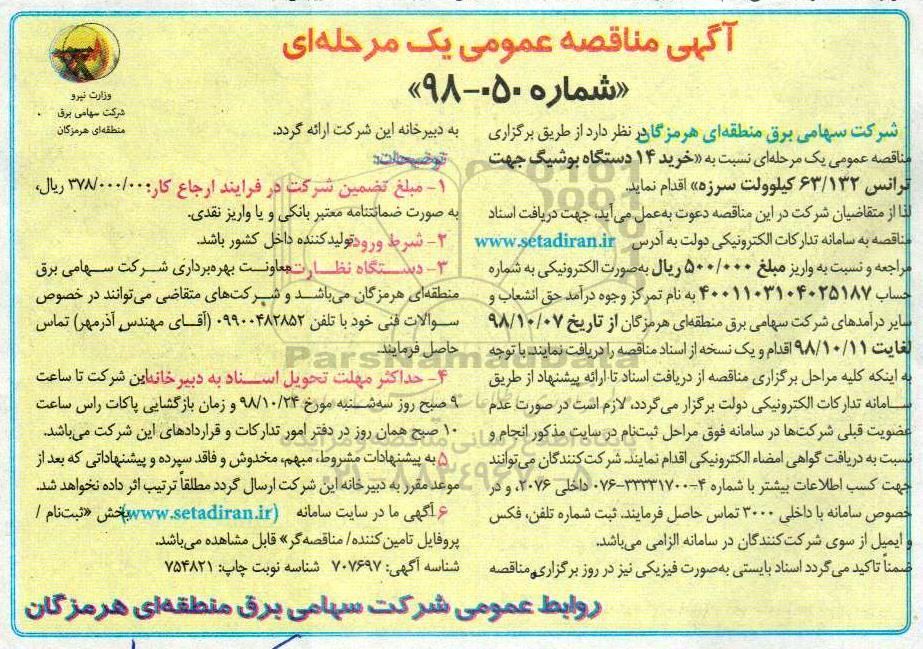 آگهی مناقصه عمومی یک مرحله‌ای
«شماره ۰۵۰-۹۸»
وزارت نیرو
شرکت سهامی برق
منطقه‌ای هرمزگان
شرکت سهامی برق منطقه‌ای هرمزگان در نظر دارد از طریق برگزاری
مناقصه عمومی یک مرحله‌ای نسبت به «خرید ۱۴ دستگاه بوشینگ جهت
ترانس ۶۳/۱۳۲ کیلوولت سرزه» اقدام نماید.
لذا از متقاضیان شرکت در این مناقصه دعوت به‌عمل می‌آید، جهت دریافت اسناد
مناقصه به سامانه تدارکات الکترونیکی دولت به آدرس www.setadiran.ir
مراجعه و نسبت به واریز مبلغ ۵۰۰/۰۰۰ ریال به‌صورت الکترونیکی به شماره
حساب ۴۰۰۱۱۰۳۱۰۴۰۲۵۱۸۷ به نام تمرکز وجوه درآمد حق انشعاب و
سایر درآمدهای شرکت سهامی برق منطقه‌ای هرمزگان از تاریخ ۹۸/۱۰/۰۷
لغایت ۹۸/۱۰/۱۱ اقدام و یک نسخه از اسناد مناقصه را دریافت نمایند. با توجه
به اینکه کلیه مراحل برگزاری مناقصه از دریافت اسناد تا ارائه پیشنهاد از طریق
سامانه تدارکات الکترونیکی دولت برگزار می‌گردد، لازم است در صورت عدم
عضویت قبلی شرکت‌ها در سامانه فوق مراحل ثبت‌نام در سایت مذکور انجام و
نسبت به دریافت گواهی امضاء الکترونیکی اقدام نمایند. شرکت‌کنندگان می‌توانند
جهت کسب اطلاعات بیشتر با شماره ۴-۳۳۳۳۱۷۰۰-۰۷۶ داخلی ۲۰۷۶، و در
خصوص سامانه با داخلی ۳۰۰۰ تماس حاصل فرمایند. ثبت شماره تلفن، فکس
و ایمیل از سوی شرکت‌کنندگان در سامانه الزامی می‌باشد.
ضمناً تاکید می‌گردد اسناد بایستی به‌صورت فیزیکی نیز در روز برگزاری مناقصه
به دبیرخانه این شرکت ارائه گردد.
توضیحات:
۱- مبلغ تضمین شرکت در فرایند ارجاع کار: ۳۷۸/۰۰۰/۰۰۰ ریال،
به صورت ضمانتنامه معتبر بانکی و یا واریز نقدی.
۲- شرط ورود: تولیدکننده داخل کشور باشد.
۳- دستگاه نظارت: معاونت بهره‌برداری شرکت سهامی برق
منطقه‌ای هرمزگان می‌باشد و شرکت‌های متقاضی می‌توانند در خصوص
سوالات فنی خود با تلفن ۰۹۹۰۰۴۸۲۸۵۲ (آقای مهندس آذرمهر) تماس
حاصل فرمایند.
۴- حداکثر مهلت تحویل اسناد به دبیرخانه: این شرکت تا ساعت
۹ صبح روز سه‌شنبه مورخ ۹۸/۱۰/۲۴ و زمان بازگشایی پاکات راس ساعت
۱۰ صبح همان روز در دفتر امور تدارکات و قراردادهای این شرکت می‌باشد.
۵ به پیشنهادات مشروط، مبهم، مخدوش و فاقد سپرده و پیشنهاداتی که بعد از
موعد مقرر به دبیرخانه این شرکت ارسال گردد مطلقاً ترتیب اثر داده نخواهد شد.
۶ آگهی ما در سایت سامانه (www.setadiran.ir) بخش «ثبت‌نام /
پروفایل تامین‌کننده/ مناقصه‌گر» قابل مشاهده می‌باشد.
شناسه آگهی: ۷۰۷۶۹۷ شناسه نوبت چاپ: ۷۵۴۸۲۱
روابط عمومی شرکت سهامی برق منطقه‌ای هرمزگان